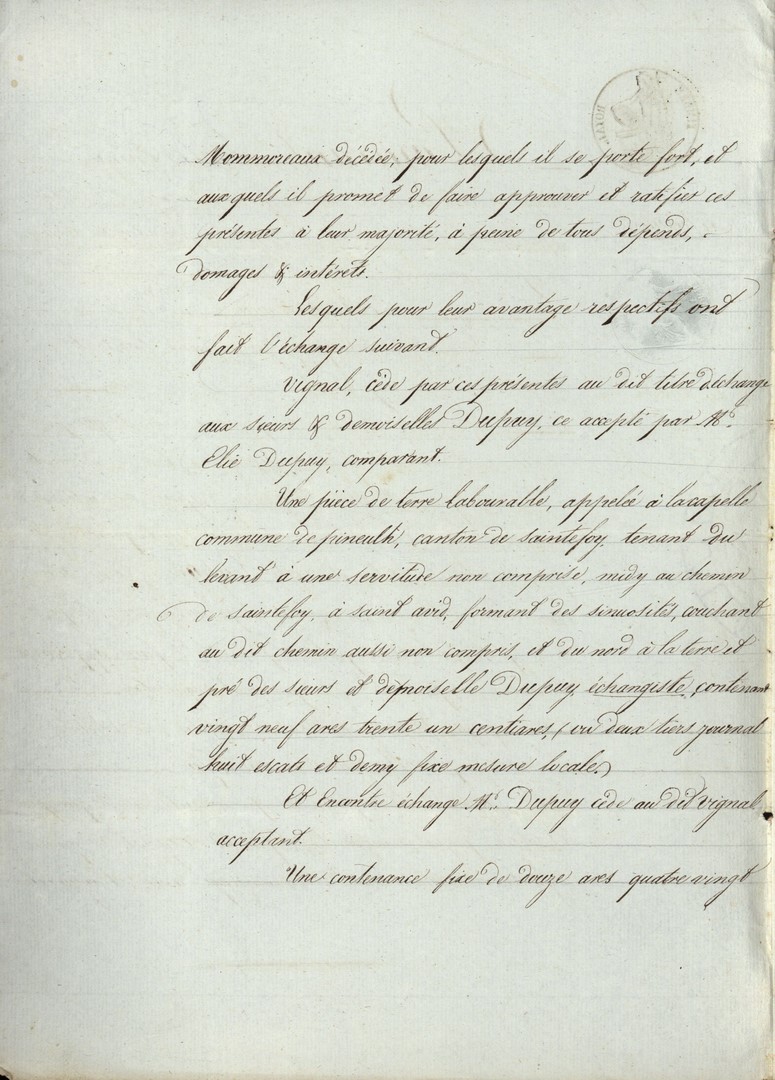 Mommoreaux décédée, pour lesquels il se porte fort, et
aux quels il promet de faire approuver et ratifier ces
présentes à leur majorité, à peine de tous dépends,
domages & intérets.
Lesquels pour leur avantage respectifs ont
fait l'échange suivant.
Vignal, cède par ces présentes au dit titre d'échange
aux sœurs & demoiselles Dupuy, ce accepté par Mr.
Elie Dupuy, comparant.
Une pièce de terre labourable, appelée à lacapelle
commune de pineuilh, canton de saintefoy, tenant du
levant à une servitude non comprise, midy au chemin
de saintefoy, à saint avid, formant des sinuosités, couchant
au dit chemin aussi non compris, et du nord à la terre et
pré des sœurs et demoiselle Dupuy échangiste, contenant
vingt neuf ares trente un centiares, (ou deux tiers journal
huit escats et demy fixe mesure locale.)
Et Encontre échange Mr. Dupuy cède au dit Vignal
acceptant.
Une contenance fixe de douze ares quatre vingt